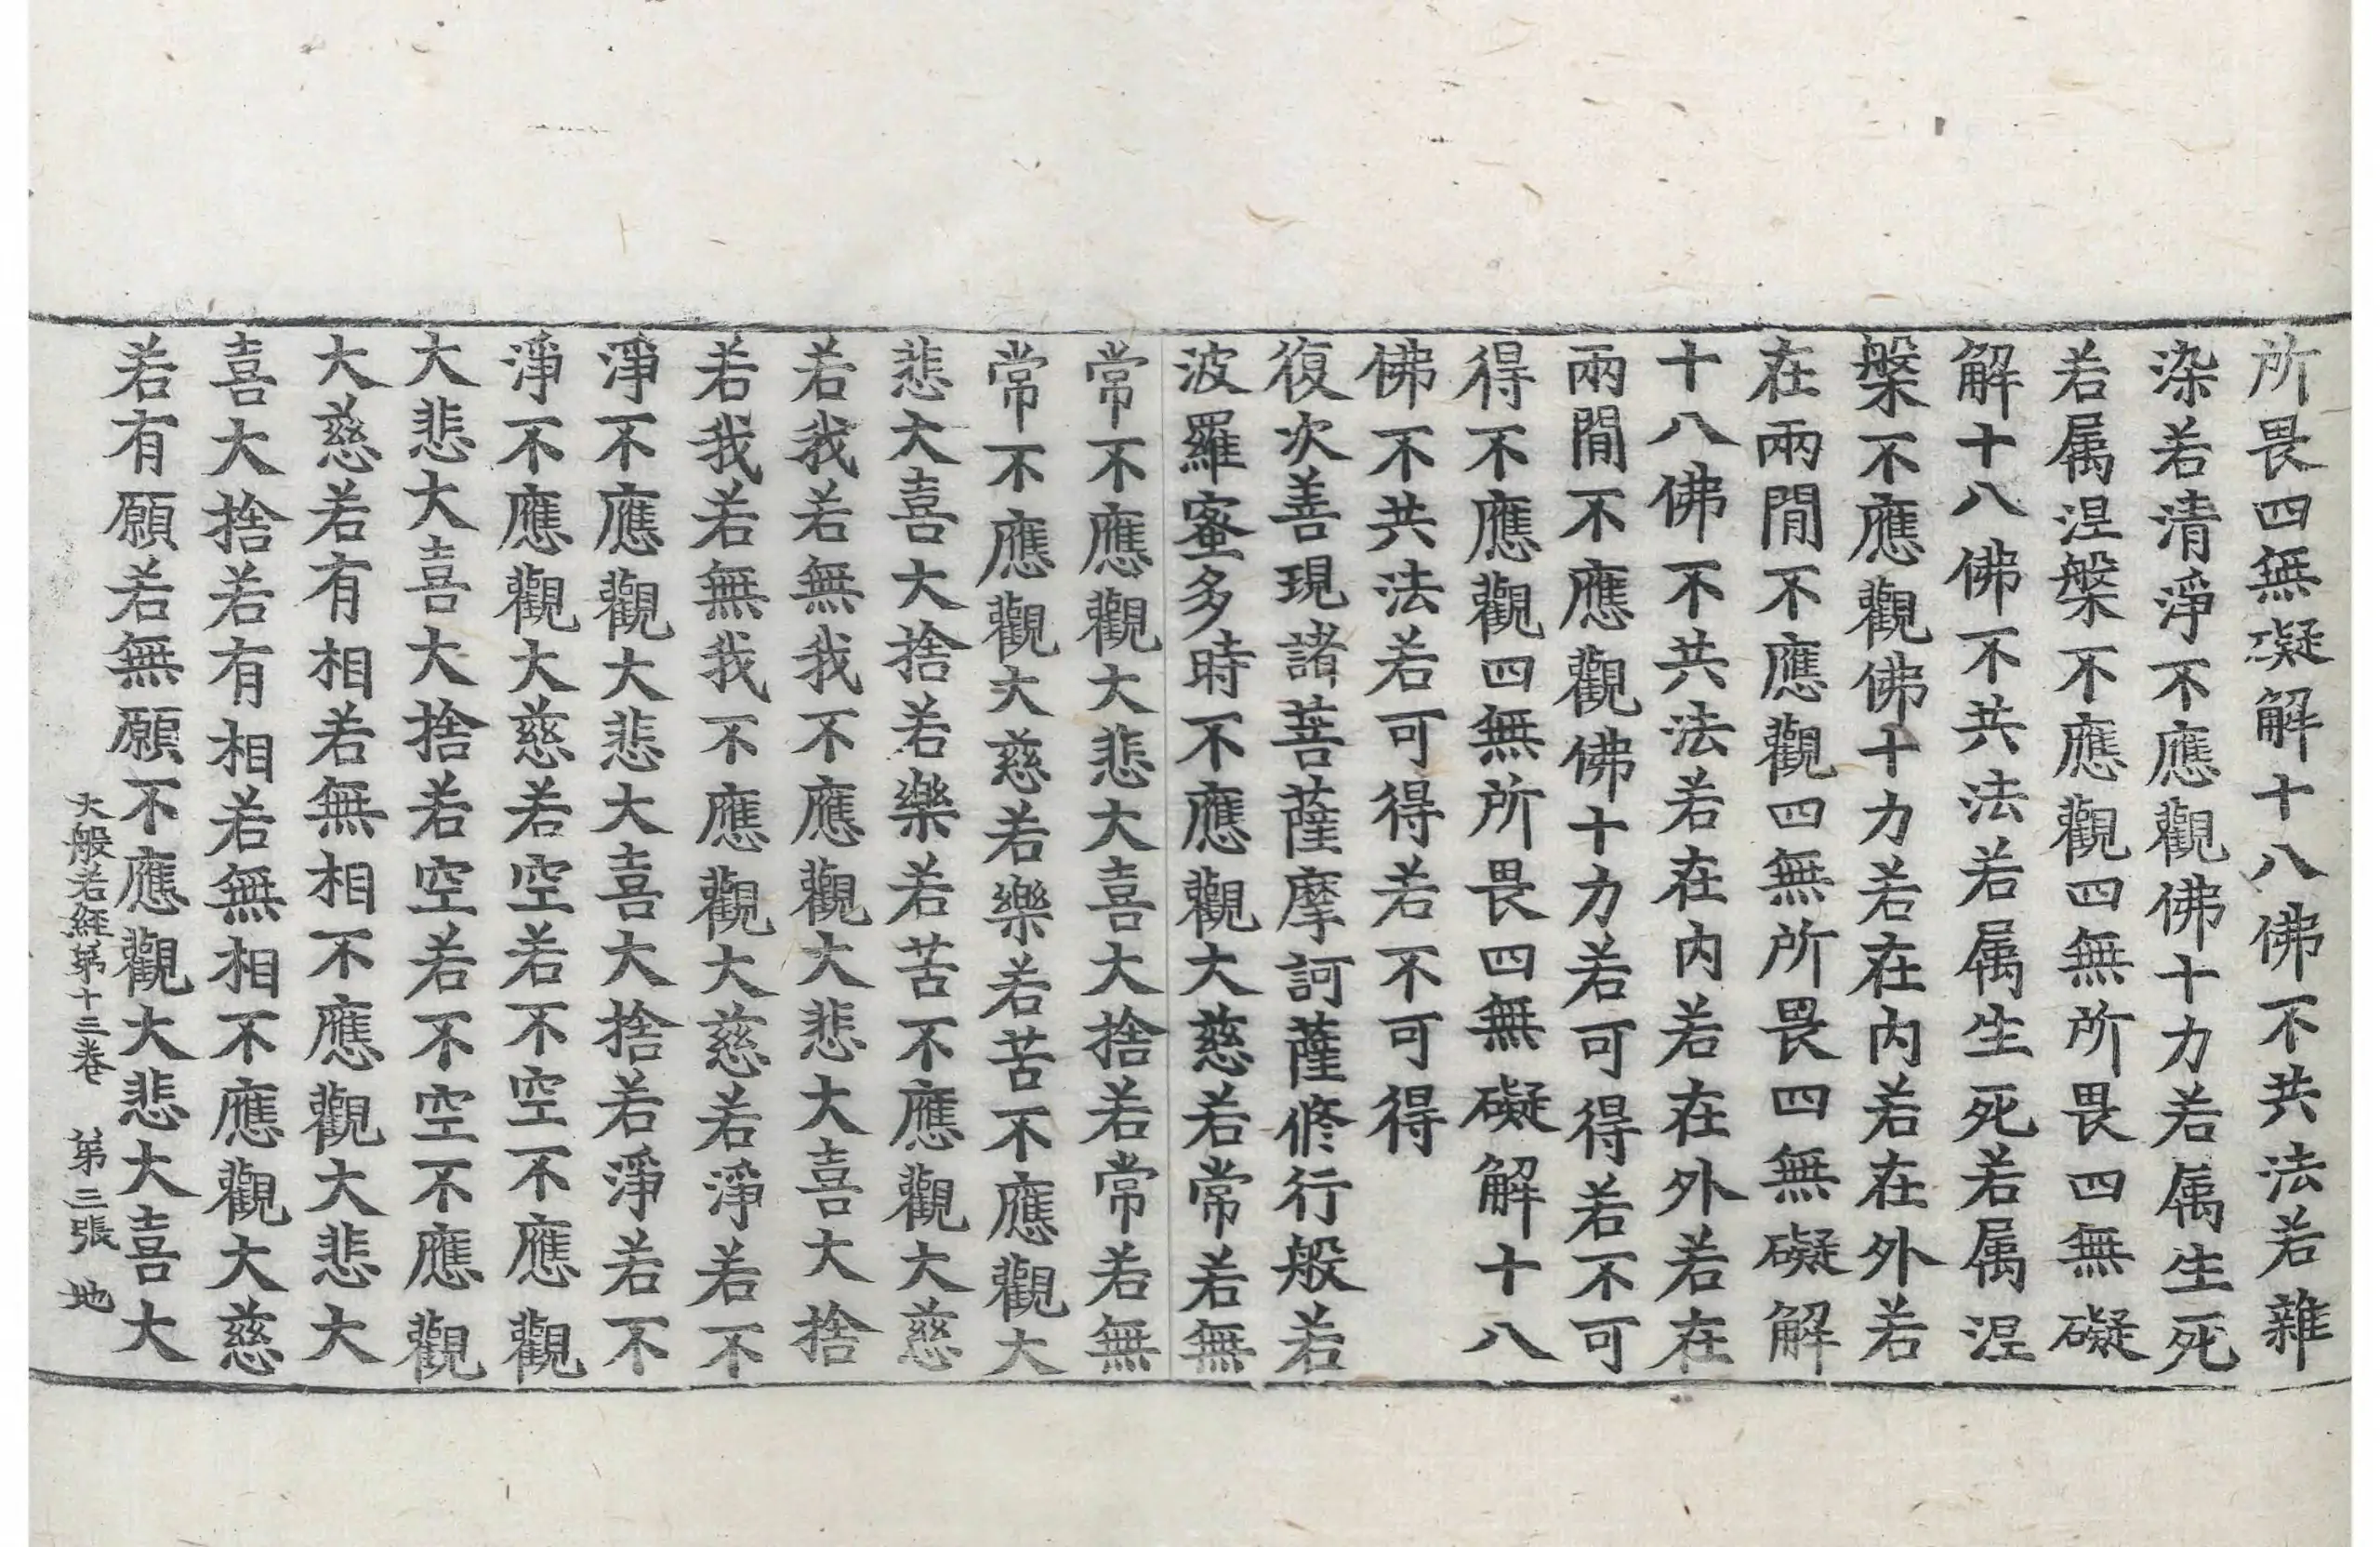 所畏四無礙解十八佛不共法若雜
染若清淨不應觀佛十力若属生死
若属涅槃不應觀四無所畏四無礙
解十八佛不共法若属生死若属涅
槃不應觀佛十力若在內若在外若
在兩閒不應觀四無所畏四無礙解
十八佛不共法若在內若在外若在
兩閒不應觀佛十力若可得若不可
得不應觀四無所畏四無礙解十八
佛不共法若可得若不可得
復次善現諸菩薩摩訶薩修行般若
波羅蜜多時不應觀大慈若常若無
常不應觀大悲大喜大捨若常若無
常不應觀大慈若樂若苦不應觀大
悲大喜大捨若樂若苦不應觀大慈
若我若無我不應觀大悲大喜大捨
若我若無我不應觀大慈若淨若不
淨不應觀大悲大喜大捨若淨若不
淨不應觀大慈若空若不空不應觀
大悲大喜大捨若空若不空不應觀
大慈若有相若無相不應觀大悲大
喜大捨若有相若無相不應觀大慈
若有願若無願不應觀大悲大喜大
大般若經第十三卷 第三張 地